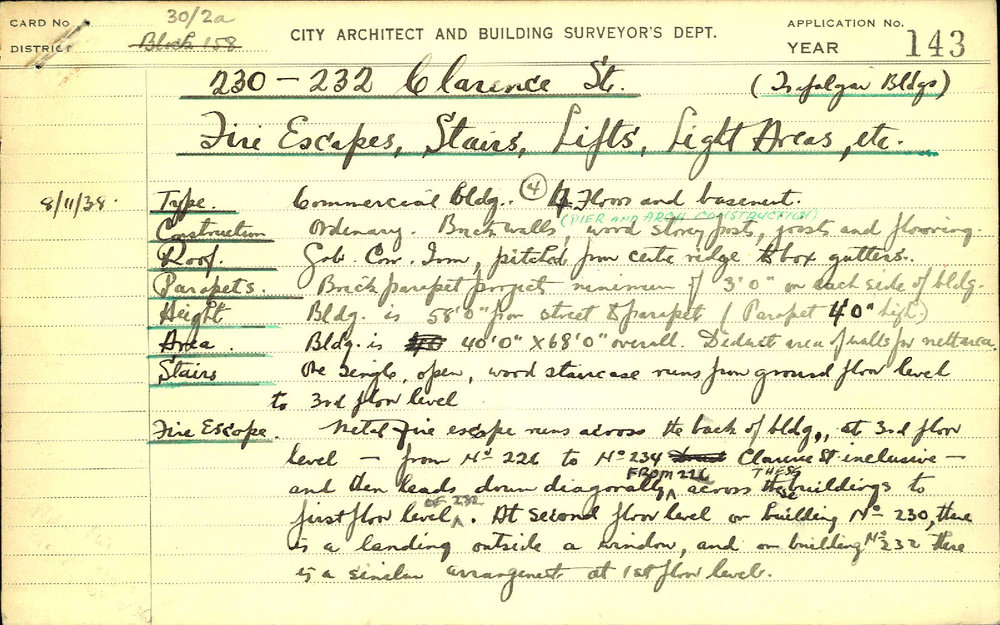 CARD No. 30/2a
DISTRICT Block 158
CITY ARCHITECT AND BUILDING SURVEYOR'S DEPT.
APPLICATION No.
YEAR 143
230 – 232 Clarence St. (Trafalgar Bldgs)
Fire Escapes, Stairs, Lifts, Light Areas, etc.
8/11/38. Type. Commercial Bldg. 4 Floors and basement.
(PIER AND ARCH CONSTRUCTION)
Construction Ordinary. Brick walls, wood storey posts, joists and flooring.
Roof. Galv. Corr. Iron, pitched from centre ridge to box gutters.
Parapets. Brick parapet projects minimum of 3'0" on each side of bldg.
Height Bldg. is 58'0" from street to parapet (Parapet 4'0" high.)
Area. Bldg. is 40'0" X 68'0" overall. Deduct area of walls for nett area.
Stairs One single, open, wood staircase runs from ground floor level
to 3rd floor level
Fire Escape. Metal fire escape runs across the back of bldg., at 3rd floor
level — from No 226 to No 234 Clarence St inclusive —
FROM 226 THESE
and then leads down diagonally across these buildings to
OF 232
first floor level. At second floor level on building No 230, there
is a landing outside a window, and on building No 232 there
is a similar arrangement at 1st floor level.